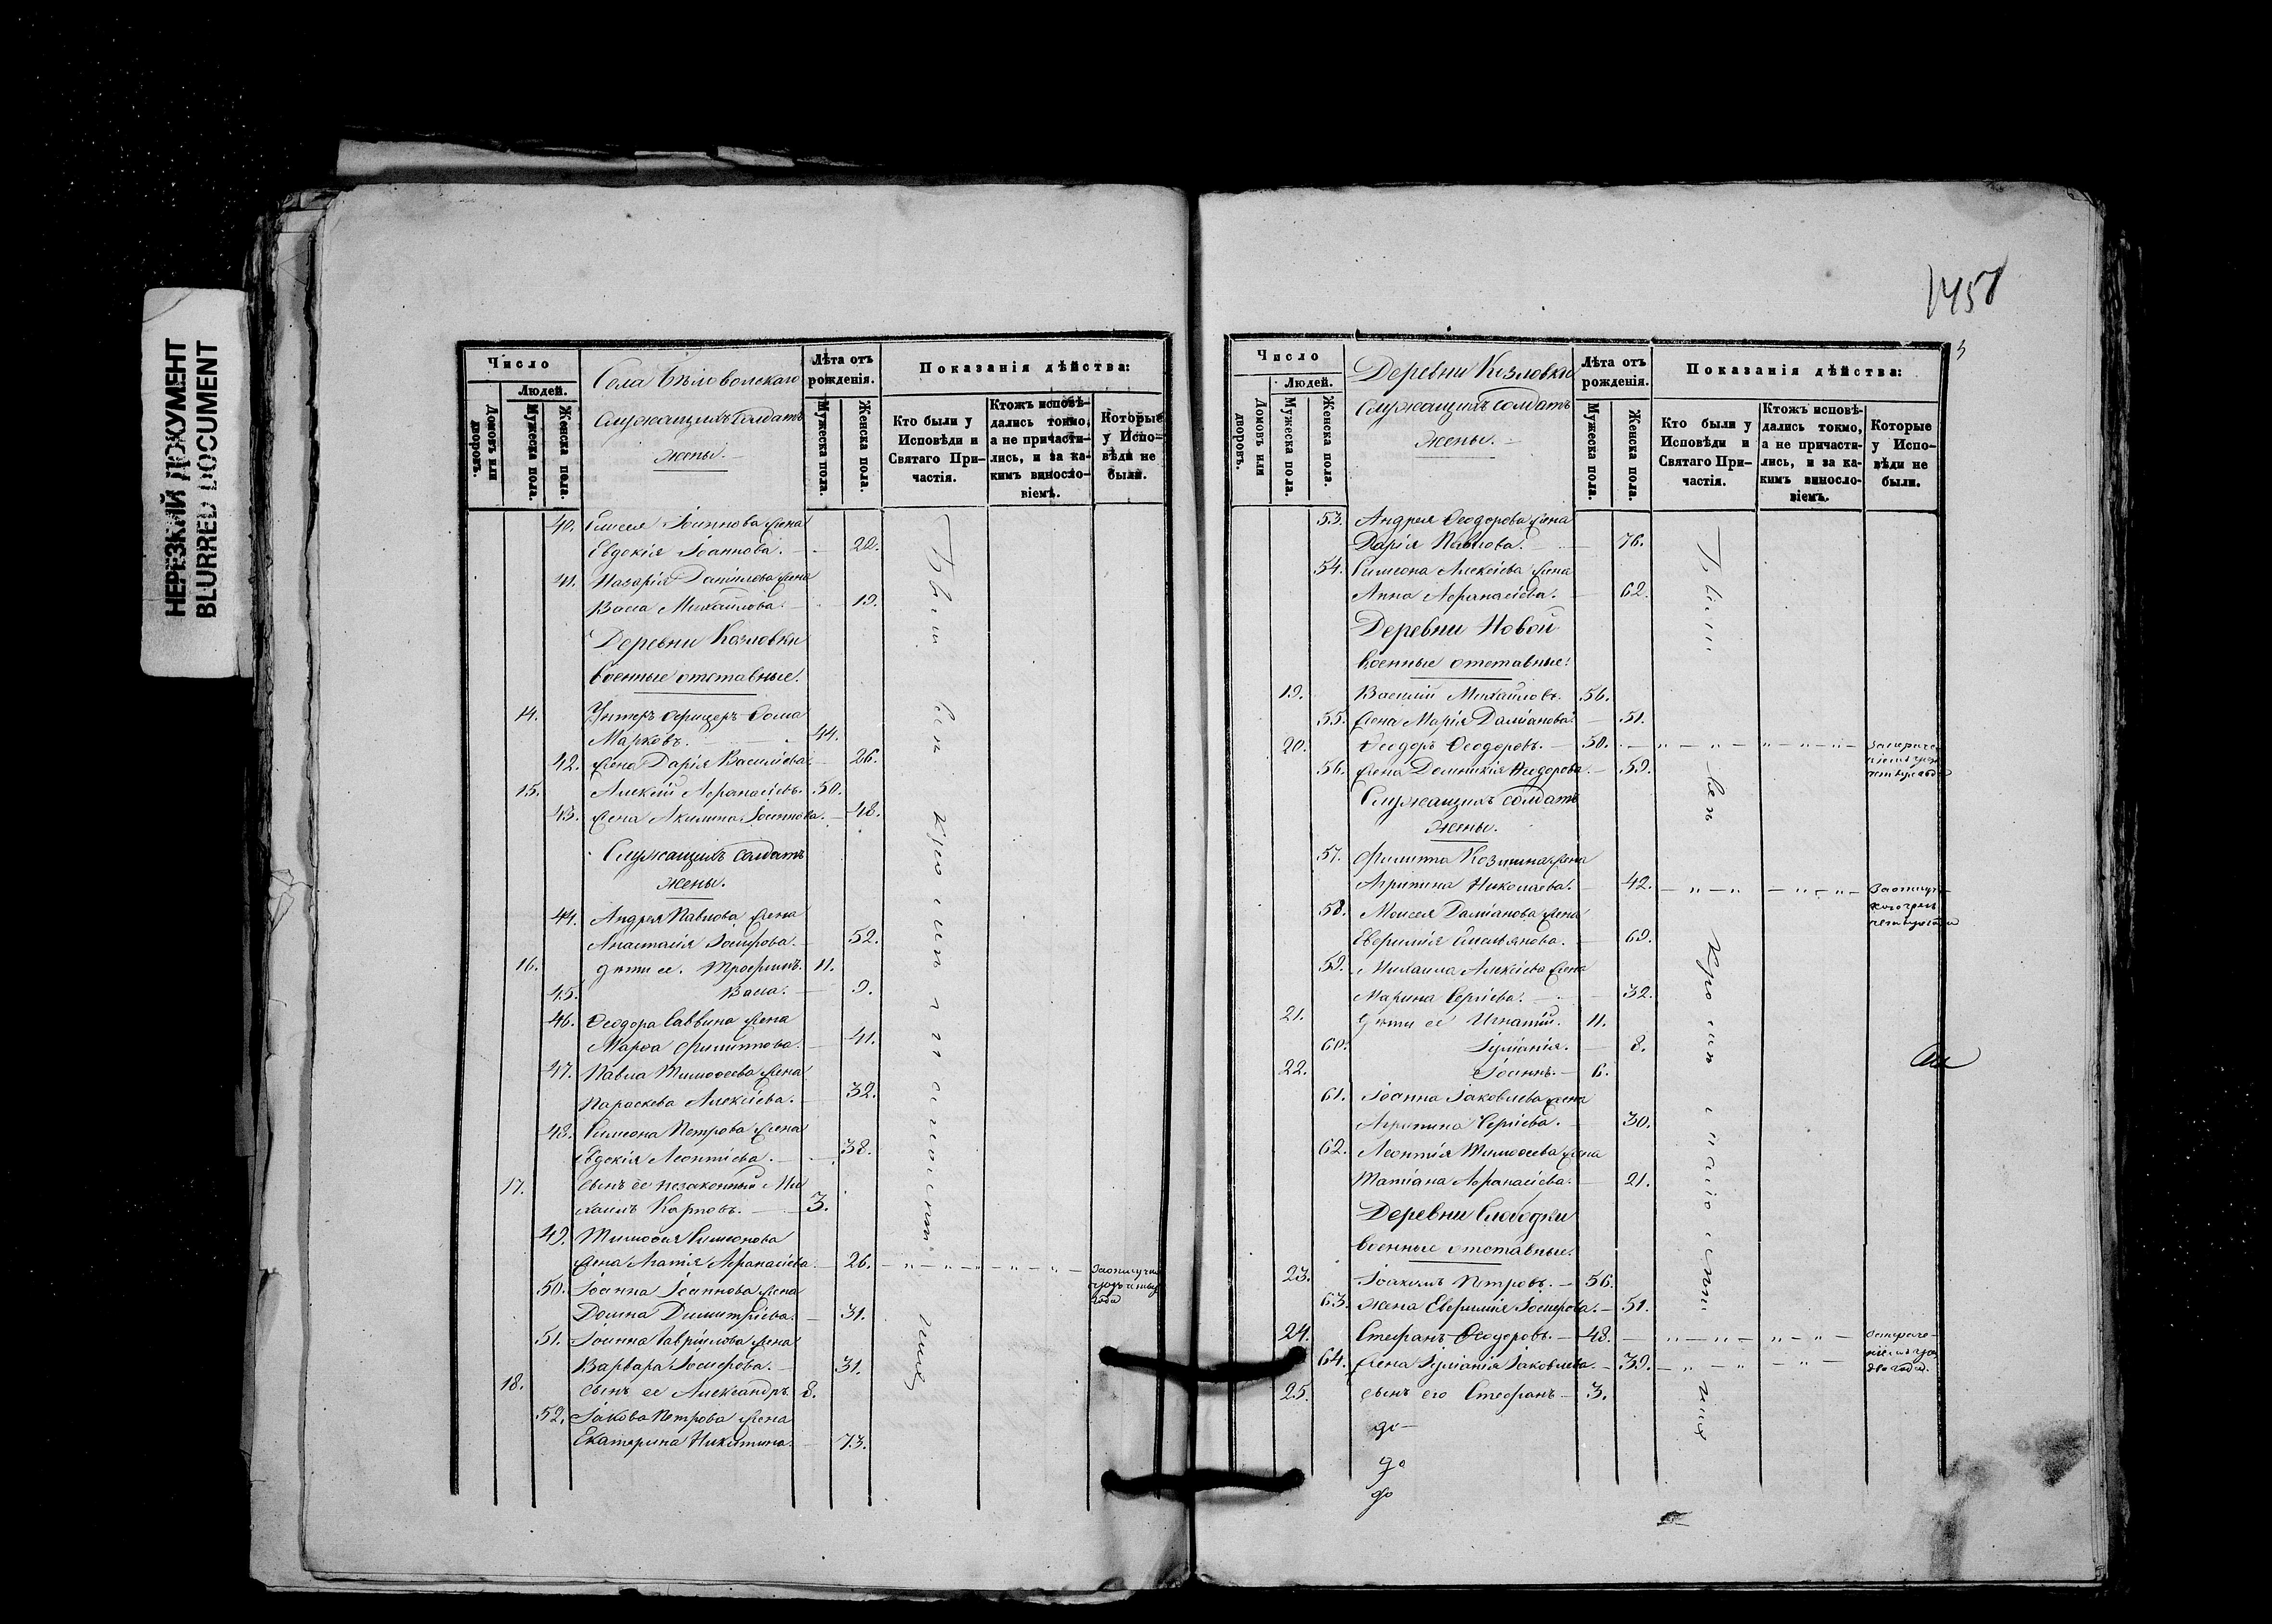 НЕРЕЗКИЙ ДОКУМЕНТ
BLURRED DOCUMENT
Число
Людей.
Домовъ или дворовъ.
Мужеска пола.
Женска пола.
Села Бѣловолскаго
служащихъ солдатъ
жены.
Лѣта отъ
рожденія.
Мужеска пола.
Женска пола.
Показанія дѣйства:
Кто были у
Исповѣди и
Святаго При-
частія.
Ктожъ исповѣ-
дались токмо,
а не причасти-
лись, и за ка-
кимъ виносло-
віемъ.
Которые
у Испо-
вѣди не
были.
40. Елисея Іоаннова жена
Евдокія Іоаннова. 22.
41. Назарія Даніилова жена
Васса Михайлова. 19.
Деревни Козловки
военные отставные.
14. Унтеръ офицеръ Ѳома
Марковъ. 44.
42. жена Дарія Василіева 26.
15. Алексій Аѳанасіевъ. 50.
43. жена Акилина Іоаннова. 48.
Служащихъ солдатъ
жены.
44. Андрея Павлова жена
Анастасія Іосифова. 52.
16. дѣти ее. Трофимъ. 11.
45. Васса. 9.
46. Ѳеодора Саввина жена
Марѳа Филиппова. 41.
47. Павла Тимоѳеева жена
Параскева Алексіева. 32.
48. Симеона Петрова жена
Евдокія Леонтіева. 38.
17. сынъ ее незаконный Ми
хаилъ Карповъ. 3.
49. Тимоѳея Симеонова
жена Агаѳія Аѳанасіева. 26.
50. Іоанна Іоаннова жена
Домна Димитріева. 31.
51. Іоанна Гавріилова жена
Варвара Іосифова. 31.
18. сынъ ее Александръ. 8.
52. Іакова Петрова жена
Екатерина Никитина. 73.
Число
Людей.
Домовъ или дворовъ.
Мужеска пола.
Женска пола.
Деревни Козловки
служащихъ солдатъ
жены.
Лѣта отъ
рожденія.
Мужеска пола.
Женска пола.
Показанія дѣйства:
Кто были у
Исповѣди и
Святаго При-
частія.
Ктожъ исповѣ-
дались токмо,
а не причасти-
лись, и за ка-
кимъ виносло-
віемъ.
Которые
у Испо-
вѣди не
были.
53. Андрея Ѳеодорова жена
Дарія Павлова. 76.
54. Симеона Алексіева жена
Анна Аѳанасіева. 62.
Деревни Новой
военные отставные.
19. Василій Михайловъ. 56.
55. жена Марія Даміанова. 51.
20. Ѳеодоръ Ѳеодоровъ. 50.
56. жена Домникія Ѳеодорова. 59.
Служащихъ солдатъ
жены.
57. Филиппа Козмина жена
Агрипина Николаева. 42.
58. Моисея Даміанова жена
Евфимія Емельянова. 69.
59. Михаила Алексіева жена
Марина Сергіева. 32.
21. дѣти ее Игнатій. 11.
60. Іуліанія. 8.
22. Іоаннъ. 6.
61. Іоанна Іаковлева жена
Агрипина Сергіева. 30.
62. Леонтія Тимоѳеева жена
Татіана Аѳанасіева. 21.
Деревни Слободки
военные отставные.
23. Іоакимъ Петровъ. 56.
63. жена Евфимія Іосифова. 51.
24. Стефанъ Ѳеодоровъ. 48.
64. жена Іуліанія Іаковлева. 39.
25. сынъ его Стефанъ 3.